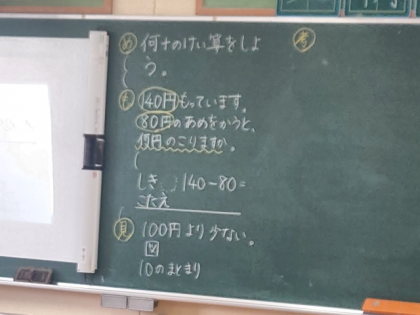 め 何十のけい算をしよ
う。
も 140円もっています。
80円のあめをかうと、
何円のこりますか。
しき 140-80=
こたえ
見 100円より少ない。
図
10のまとまり
考